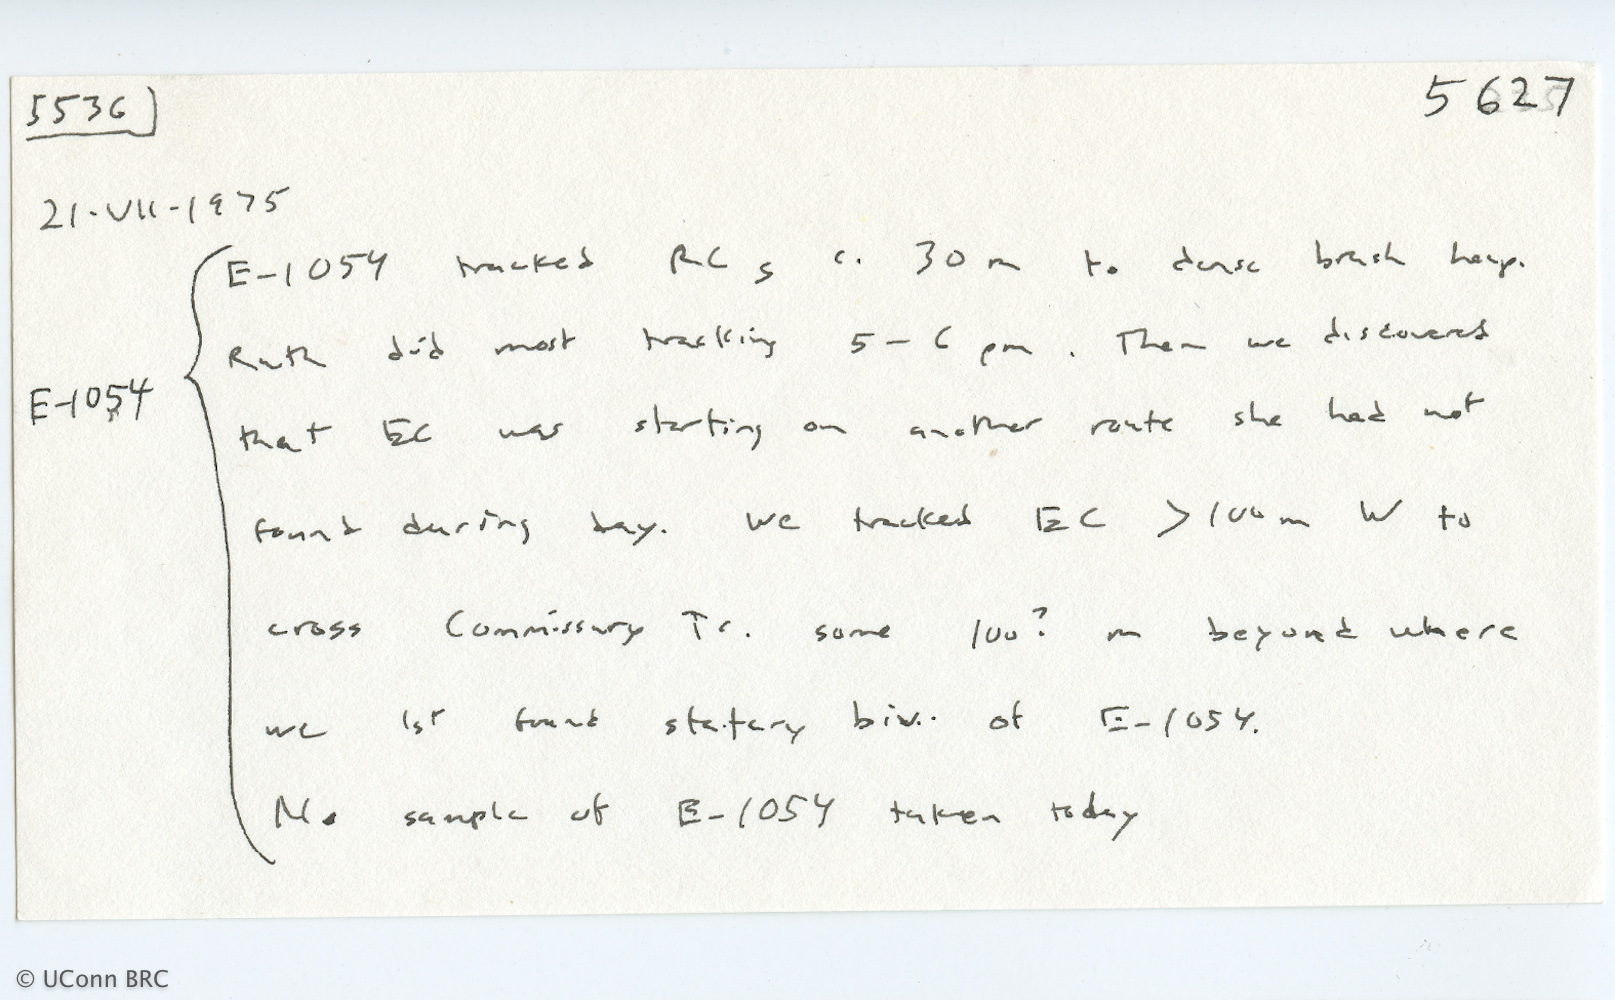 5536
5627
21-VII-1975
E-1054 tracked RC s c. 30 m to dense brush heap.
Ruth did most tracking 5-6 pm. Then we discovered
E-1054
that EC was starting on another route she had not
found during day. We tracked EC >100m W to
cross Commissary Tr. some 100? m beyond where
we 1st found statary biv. of E-1054.
No sample of E-1054 taken today
© UConn BRC